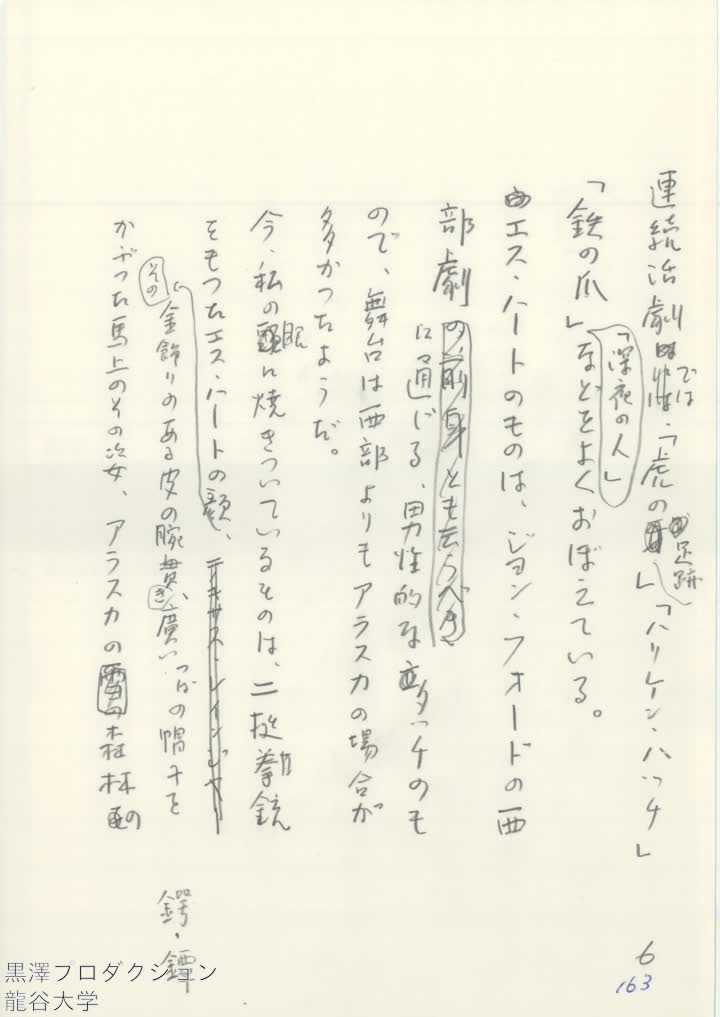 連続活劇では、「虎の足跡」「ハリケン・ハッチ」
「鉄の爪」「深夜の人」などをよくおぼえている。
エス・ハートのものは、ジョン・フォードの西
部劇の前身とも云うべき
に通じる、男性的なタッチのも
ので、舞台は西部よりもアラスカの場合が
多かったようだ。
今、私の眼に焼きついているものは、二挺拳銃
をもったエス・ハートの顔、テキサス・レインジャー
その金飾りのある皮の腕貫き、廣いつばの帽子を
かぶった馬上のその姿、アラスカの森林の
鍔・鐔
6
163
黒澤プロダクション
龍谷大学